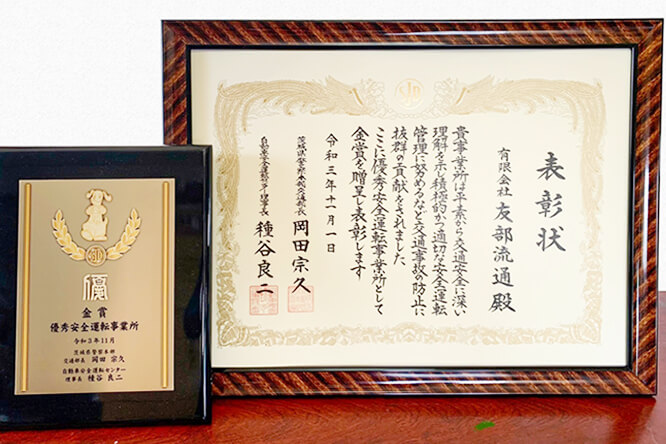 表彰状
有限会社 友部流通殿
貴事業所は平素から交通安全に深い
理解を示し積極的かつ適切な安全運転
管理に努めるなど交通事故の防止に
抜群の貢献をされました
ここに優秀安全運転事業所として
金賞を贈呈し表彰します
令和三年十一月一日
茨城県警察本部交通部長 岡田宗久
自動車安全運転センター理事長 種谷良二
優
金賞
優秀安全運転事業所
令和3年11月
茨城県警察本部
交通部長 岡田 宗久
自動車安全運転センター
理事長 種谷 良二